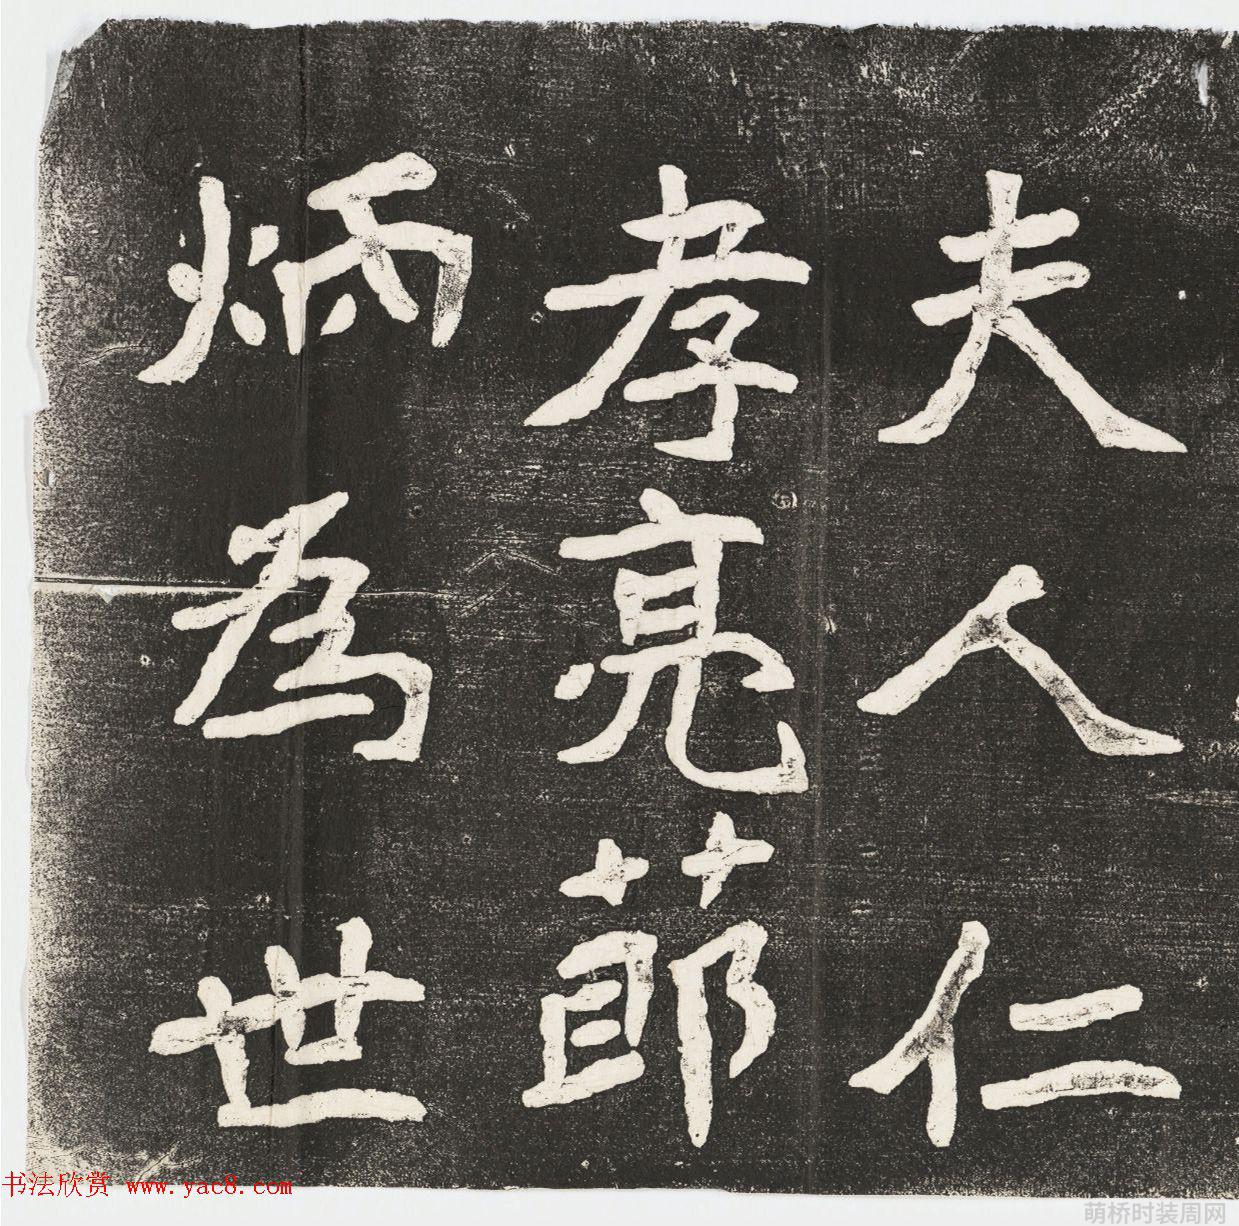 夫人仁
孝亮莭
炳為世
书法欣赏 www.yac8.com
萌桥时装周网